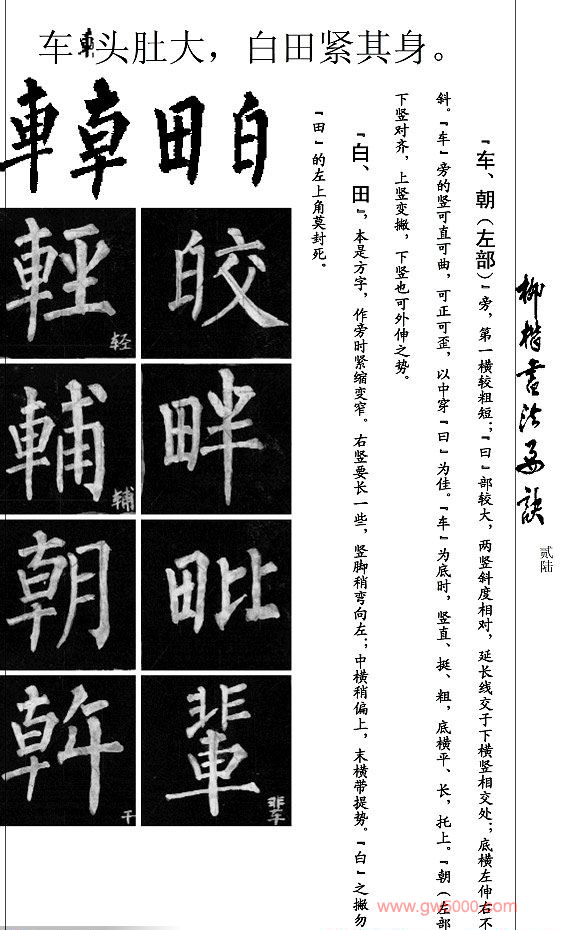 车車头肚大，白田紧其身。
柳楷书法要诀
贰陆
『车、朝（左部）』旁，第一横较粗短；『曰』部较大，两竖斜度相对，延长线交于下横竖相交处；底横左伸右不
斜。『车』旁的竖可直可曲，可正可歪，以中穿『曰』为佳。『车』为底时，竖直、挺、粗，底横平、长，托上。『朝（左部
下竖对齐，上竖变撇，下竖也可外伸之势。
『白、田』，本是方字，作旁时紧缩变窄。右竖要长一些，竖脚稍弯向左；中横稍偏上，末横带提势。『白』之撇勿
『田』的左上角莫封死。
車 𠦝 田 白
輕 轻 皎
輔 辅 畔
朝 毗
幹 干 輩 辈
www.gw5000.com